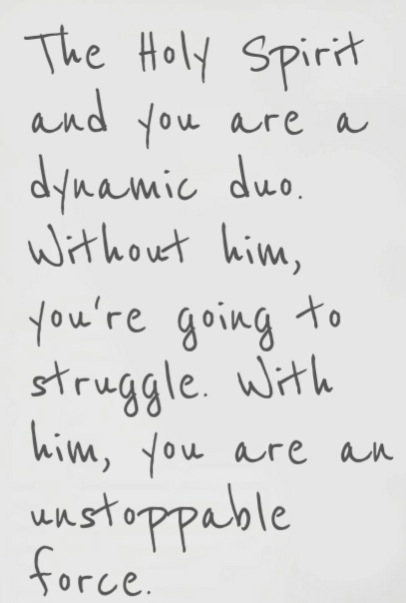 The Holy Spirit
and you are a
dynamic duo.
Without him,
you're going to
struggle. With
him, you are an
unstoppable
force.